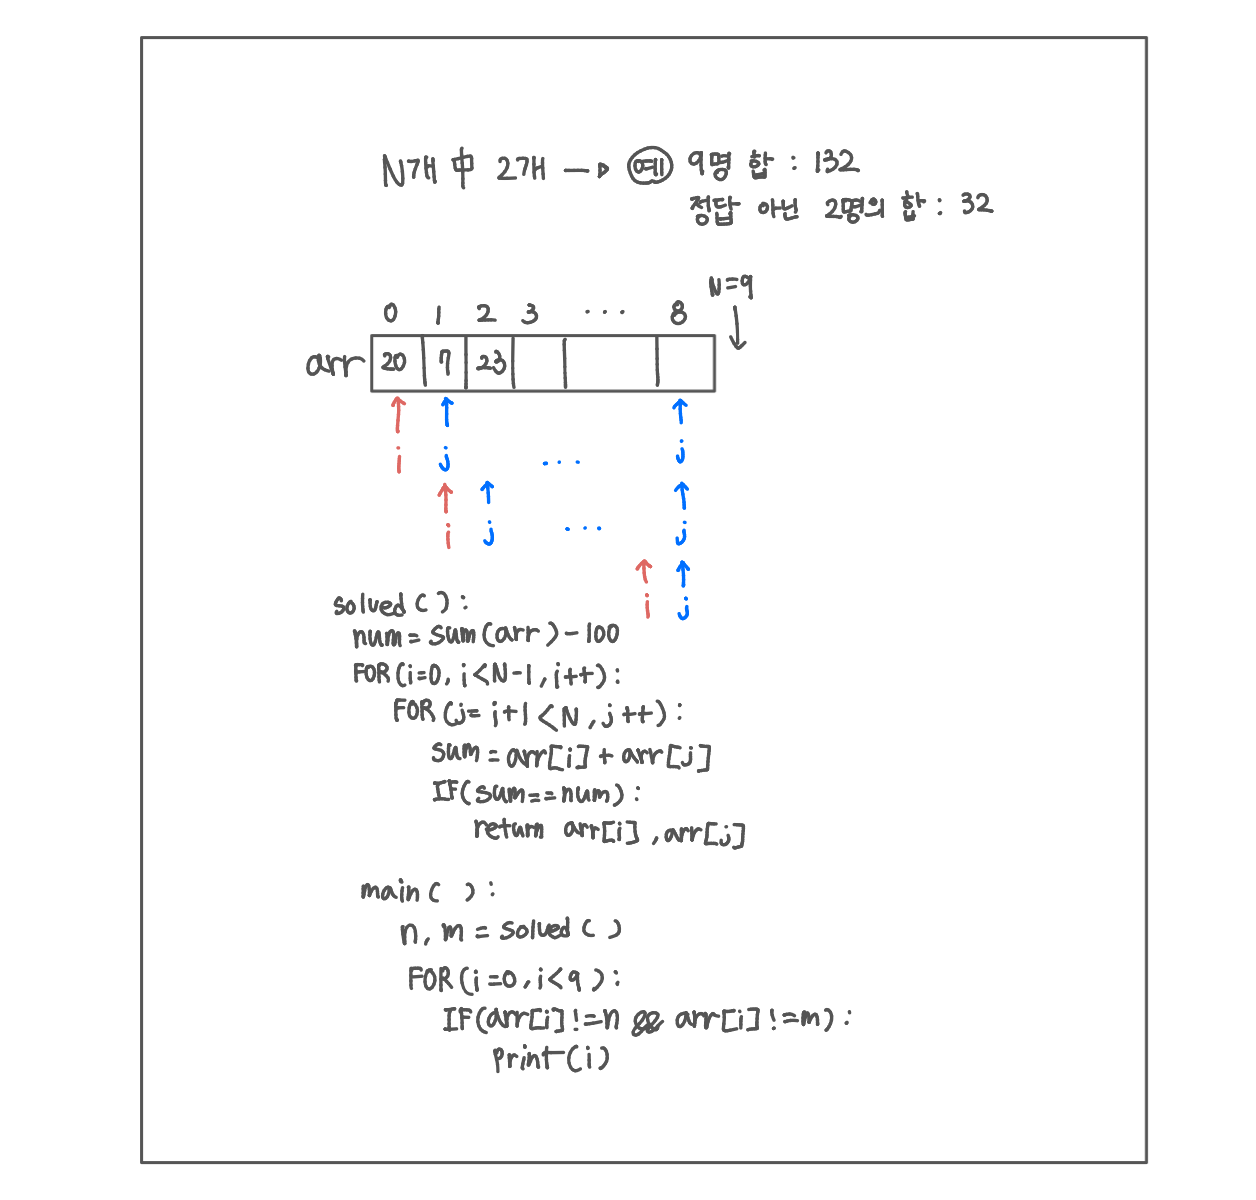 N개 中 2개 → 예 9명 합 : 132
정답 아닌 2명의 합 : 32
N=9
0 1 2 3 ... 8
arr 20 7 23
i j ... j
i j ... j
i j
solved ( ) :
num = sum (arr) - 100
FOR (i=0, i<N-1, i++) :
FOR (j= i+1 <N, j++) :
sum = arr[i] + arr[j]
IF (sum==num) :
return arr[i] , arr[j]
main ( ) :
n, m = solved ( )
FOR (i=0, i<9 ) :
IF (arr[i] !=n && arr[i] !=m) :
print (i)